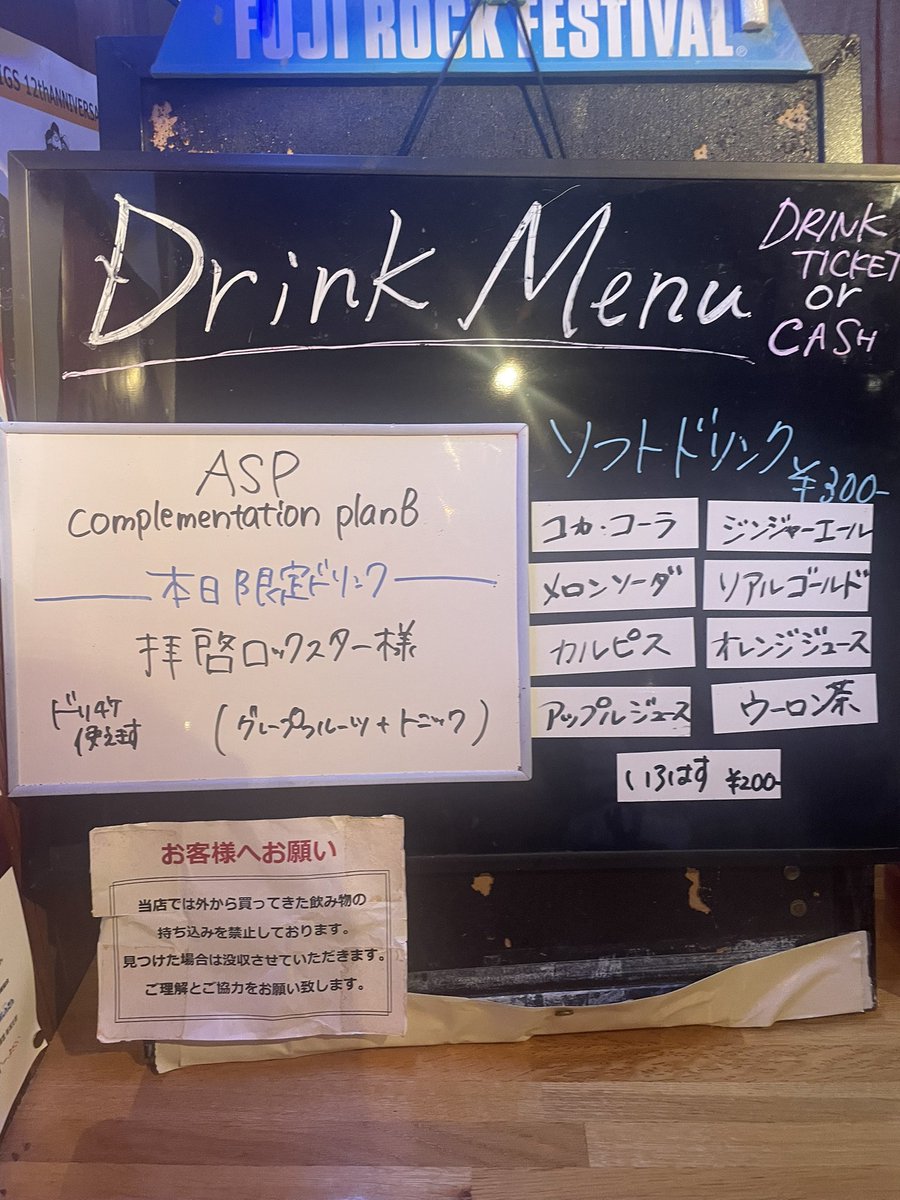 FUJI ROCK FESTIVAL®
IGS 12thANNIVERSA
Drink Menu
DRINK
TICKET
or
CASH
ASP
complementation planB
本日限定ドリンク
拝啓ロックスター様
ドリチケ
使えます
(グレープフルーツ+トニック)
ソフトドリンク
¥300-
コカ・コーラ
ジンジャーエール
メロンソーダ
リアルゴールド
カルピス
オレンジジュース
アップルジュース
ウーロン茶
いろはす ¥200-
お客様へお願い
当店では外から買ってきた飲み物の
持ち込みを禁止しております。
見つけた場合は没収させていただきます。
ご理解とご協力をお願い致します。